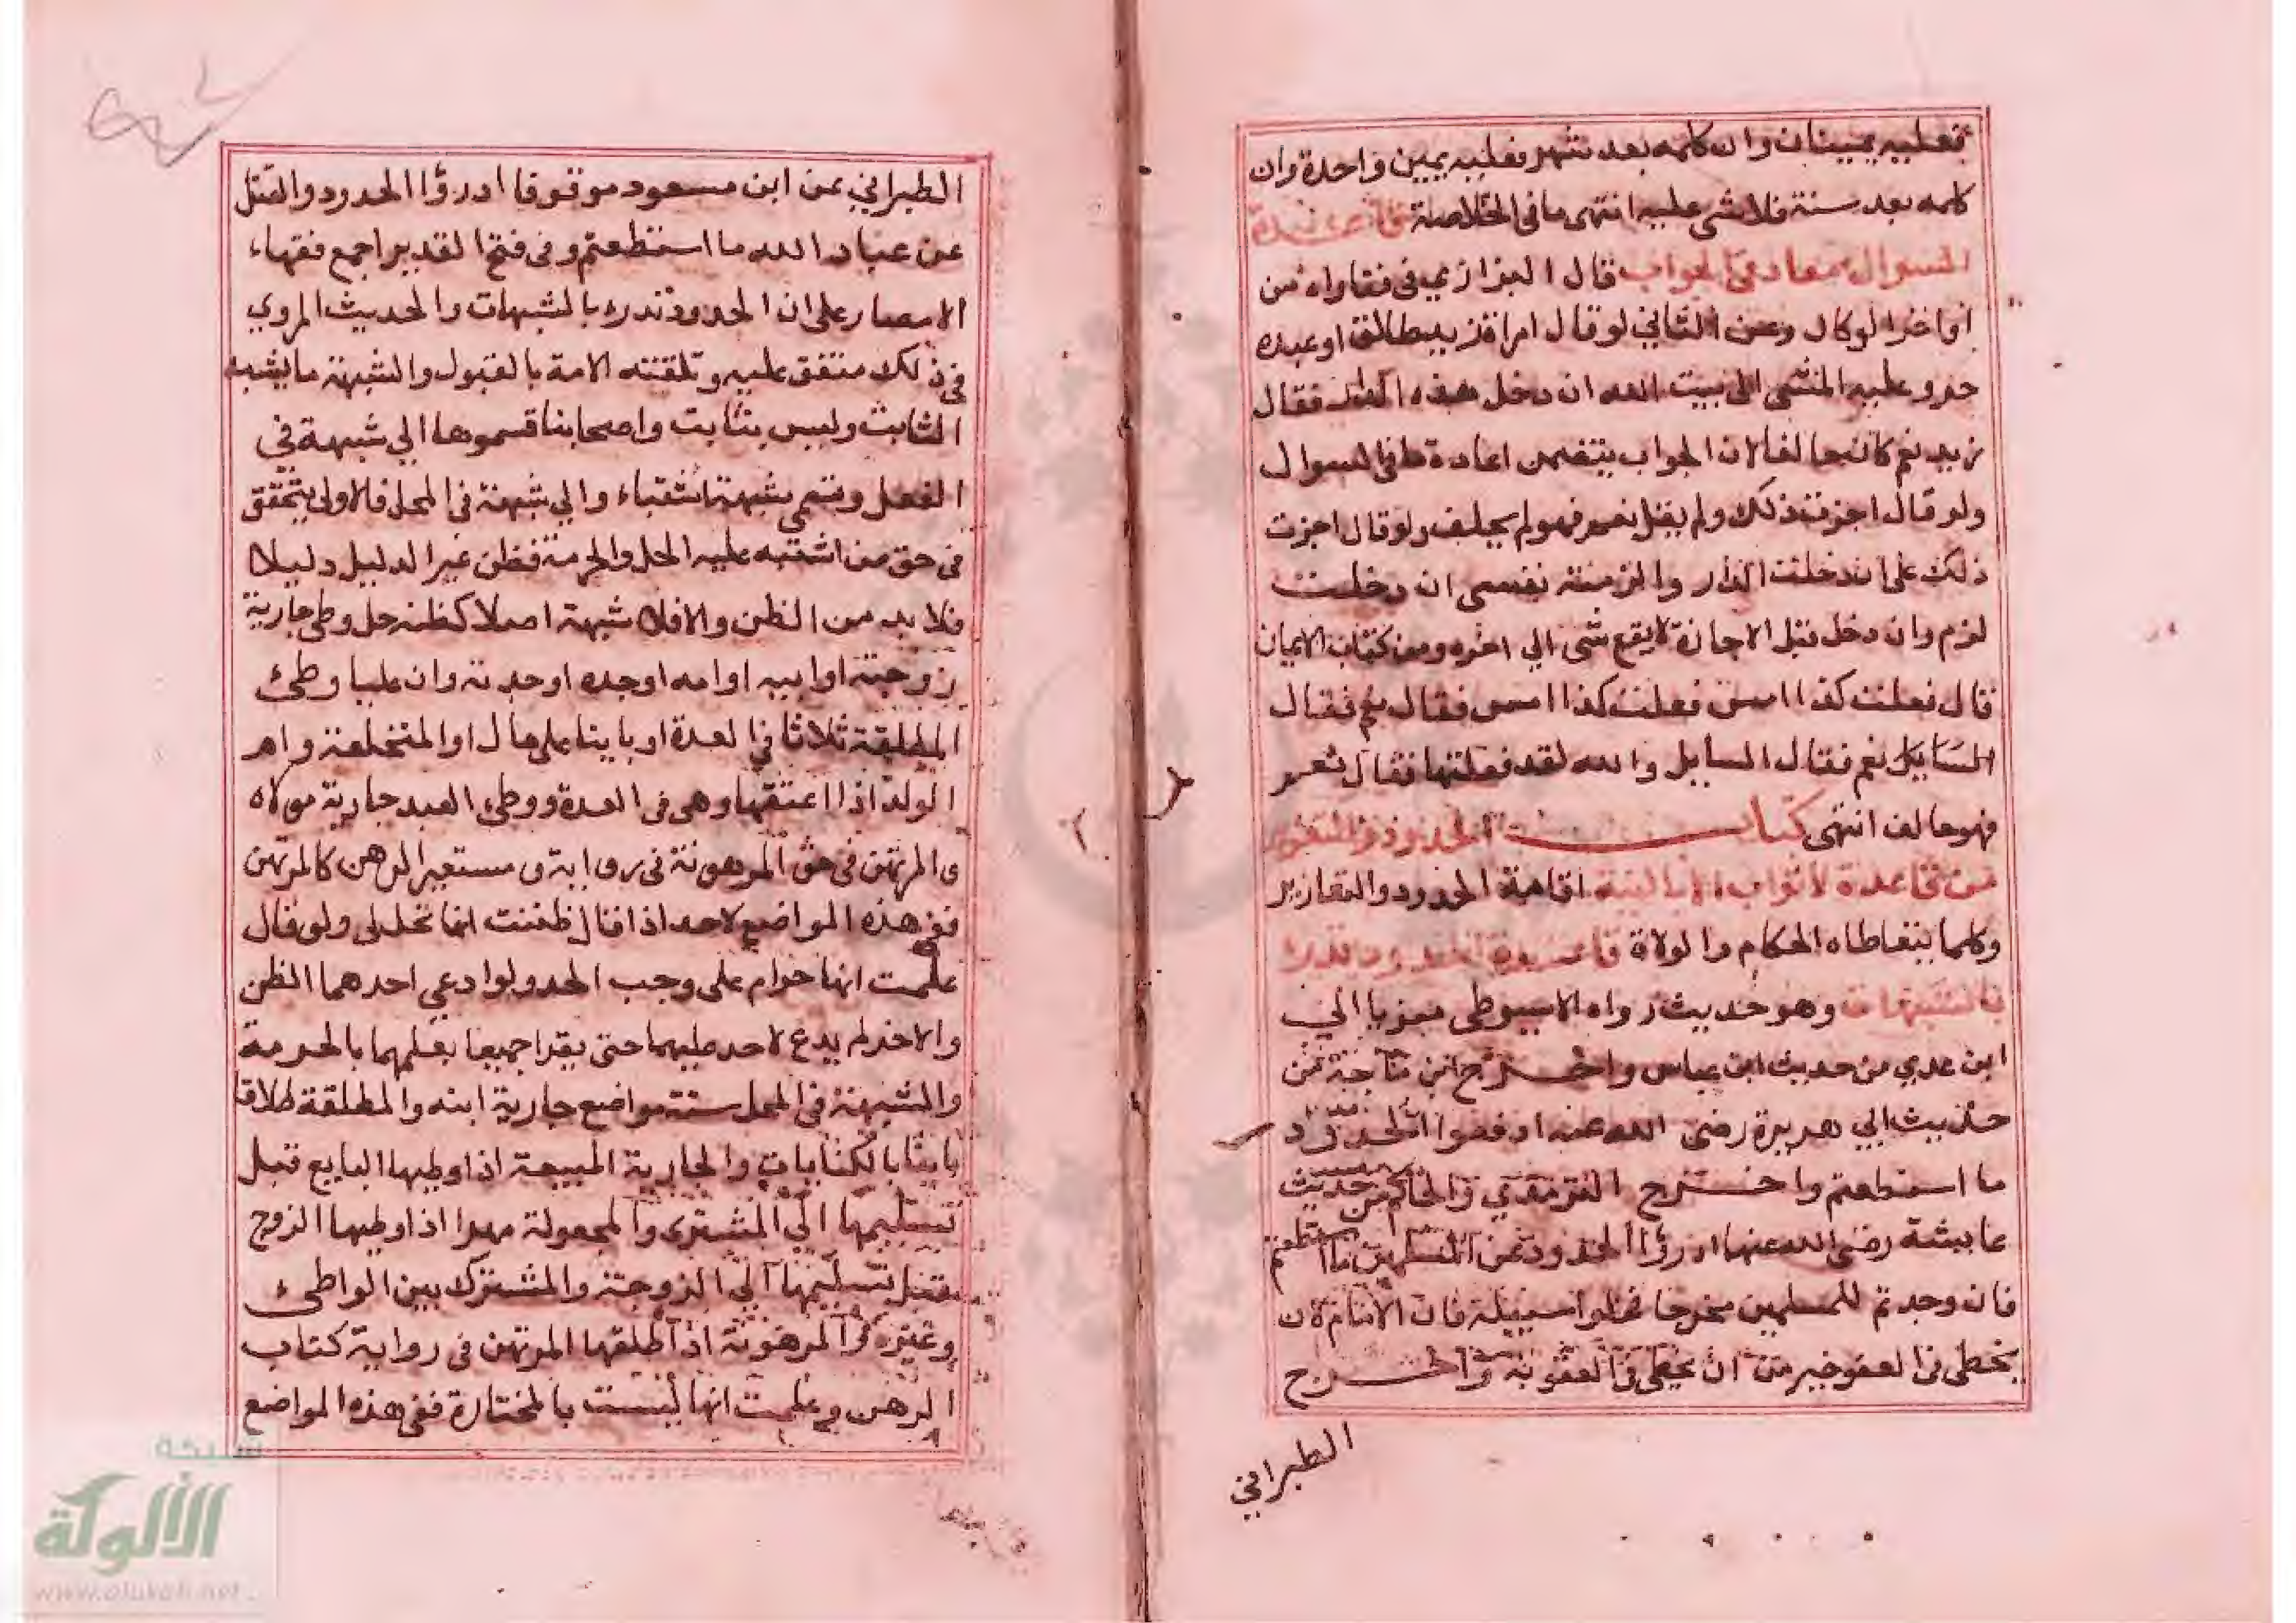 فعليه يمينان وان كلمه بعد شهر فعليه يمين واحدة وان
كلمه بعد سنة فلا شى عليه انتهى ما فى الخلاصة قاعدة
السوال معاد فى الجواب قال البزازي فى فتاواه من
اواخر الوكال وعن الثاني لو قال امراة زيد طالق او عبده
حر و عليه المشى الى بيت الله ان دخل هذه الدار فقال
زيد نعم كان حالفا لان الجواب يتضمن اعادة ما فى السوال
ولو قال اجزت ذلك ولم يقل نعم فهو لم يحلف ولو قال اجزت
ذلك على ان دخلت الدار والزمته نفسى ان دخلت
لزم وان دخل قبل الاجازة لا يقع شى الي اخره ومن كتاب الايمان
قال فعلت كذا امس فعلت كذا امس فقال نعم فقال
السايل نعم فقال السايل والله لقد فعلتها فقال نعم
فهو حالف انتهى كتاب الحدود والتعزير
من قاعدة لا ثواب الا بالنية اقامة الحدود والتعازير
وكلما يتعاطاه الحكام والولاة قاعدة الحدود تدرء
بالشبهات وهو حديث رواه الاسيوطى معزيا الى
ابن عدي من حديث ابن عباس واخرج ابن ماجة من
حديث ابي هريرة رضى الله عنه ادفعوا الحدود
ما استطعتم واخرج الترمذي والحاكم من حديث
عايشة رضى الله عنها ادرؤا الحدود عن المسلمين ما استطعتم
فان وجدتم للمسلمين مخرجا فخلوا سبيله فان الامام لان
يخطى فى العفو خير من ان يخطى فى العقوبة واخرج
الطبراني
الطبراني عن ابن مسعود موقوفا ادرؤا الحدود والقتل
عن عباد الله ما استطعتم وفى فتح القدير اجمع فقهاء
الامصار على ان الحدود تدرء بالشبهات والحديث المروي
فى ذلك متفق عليه وتلقته الامة بالقبول والشبهة ما يشبه
الثابت وليس بثابت واصحابنا قسموها الي شبهة في
الفعل وتسمى شبهة اشتباه والي شبهة فى المحل فالاولى يتحقق
فى حق من اشتبه عليه الحل والحرمة فظن غير الدليل دليلا
فلا بد من الظن والا فلا شبهة اصلا كظنه حل وطى جارية
زوجته او ابيه او امه او جده او جدته وان عليا وطئ
المطلقة ثلاثا في العدة او باينا على مال او المختلعة وام
الولد اذا اعتقها وهى فى العدة ووطى العبد جارية مولاه
و المرتهن فى حق المرهونة فى رواية و مستعير الرهن كالمرتهن
ففى هذه المواضع لا حد اذا قال ظننت انها تحل لى ولو قال
علمت انها حرام على وجب الحد ولو ادعي احدهما الظن
والاخر لم يدع لا حد عليهما حتى يقرا جميعا بعلمهما بالحرمة
والشبهة فى المحل ستة مواضع جارية ابنه والمطلقة طلاقا
باينا بالكنايات والجارية المبيعة اذا وطيها البايع قبل
تسليمها الى المشترى والمجعولة مهرا اذا وطيها الزوج
قبل تسليمها الى الزوجة والمشترك بين الواطئ
وغيره والمرهونة اذا اطلقها المرتهن فى رواية كتاب
الرهن وعلمت انها ليست بالمختارة ففى هذه المواضع
شبكة
الألوكة
www.alukah.net